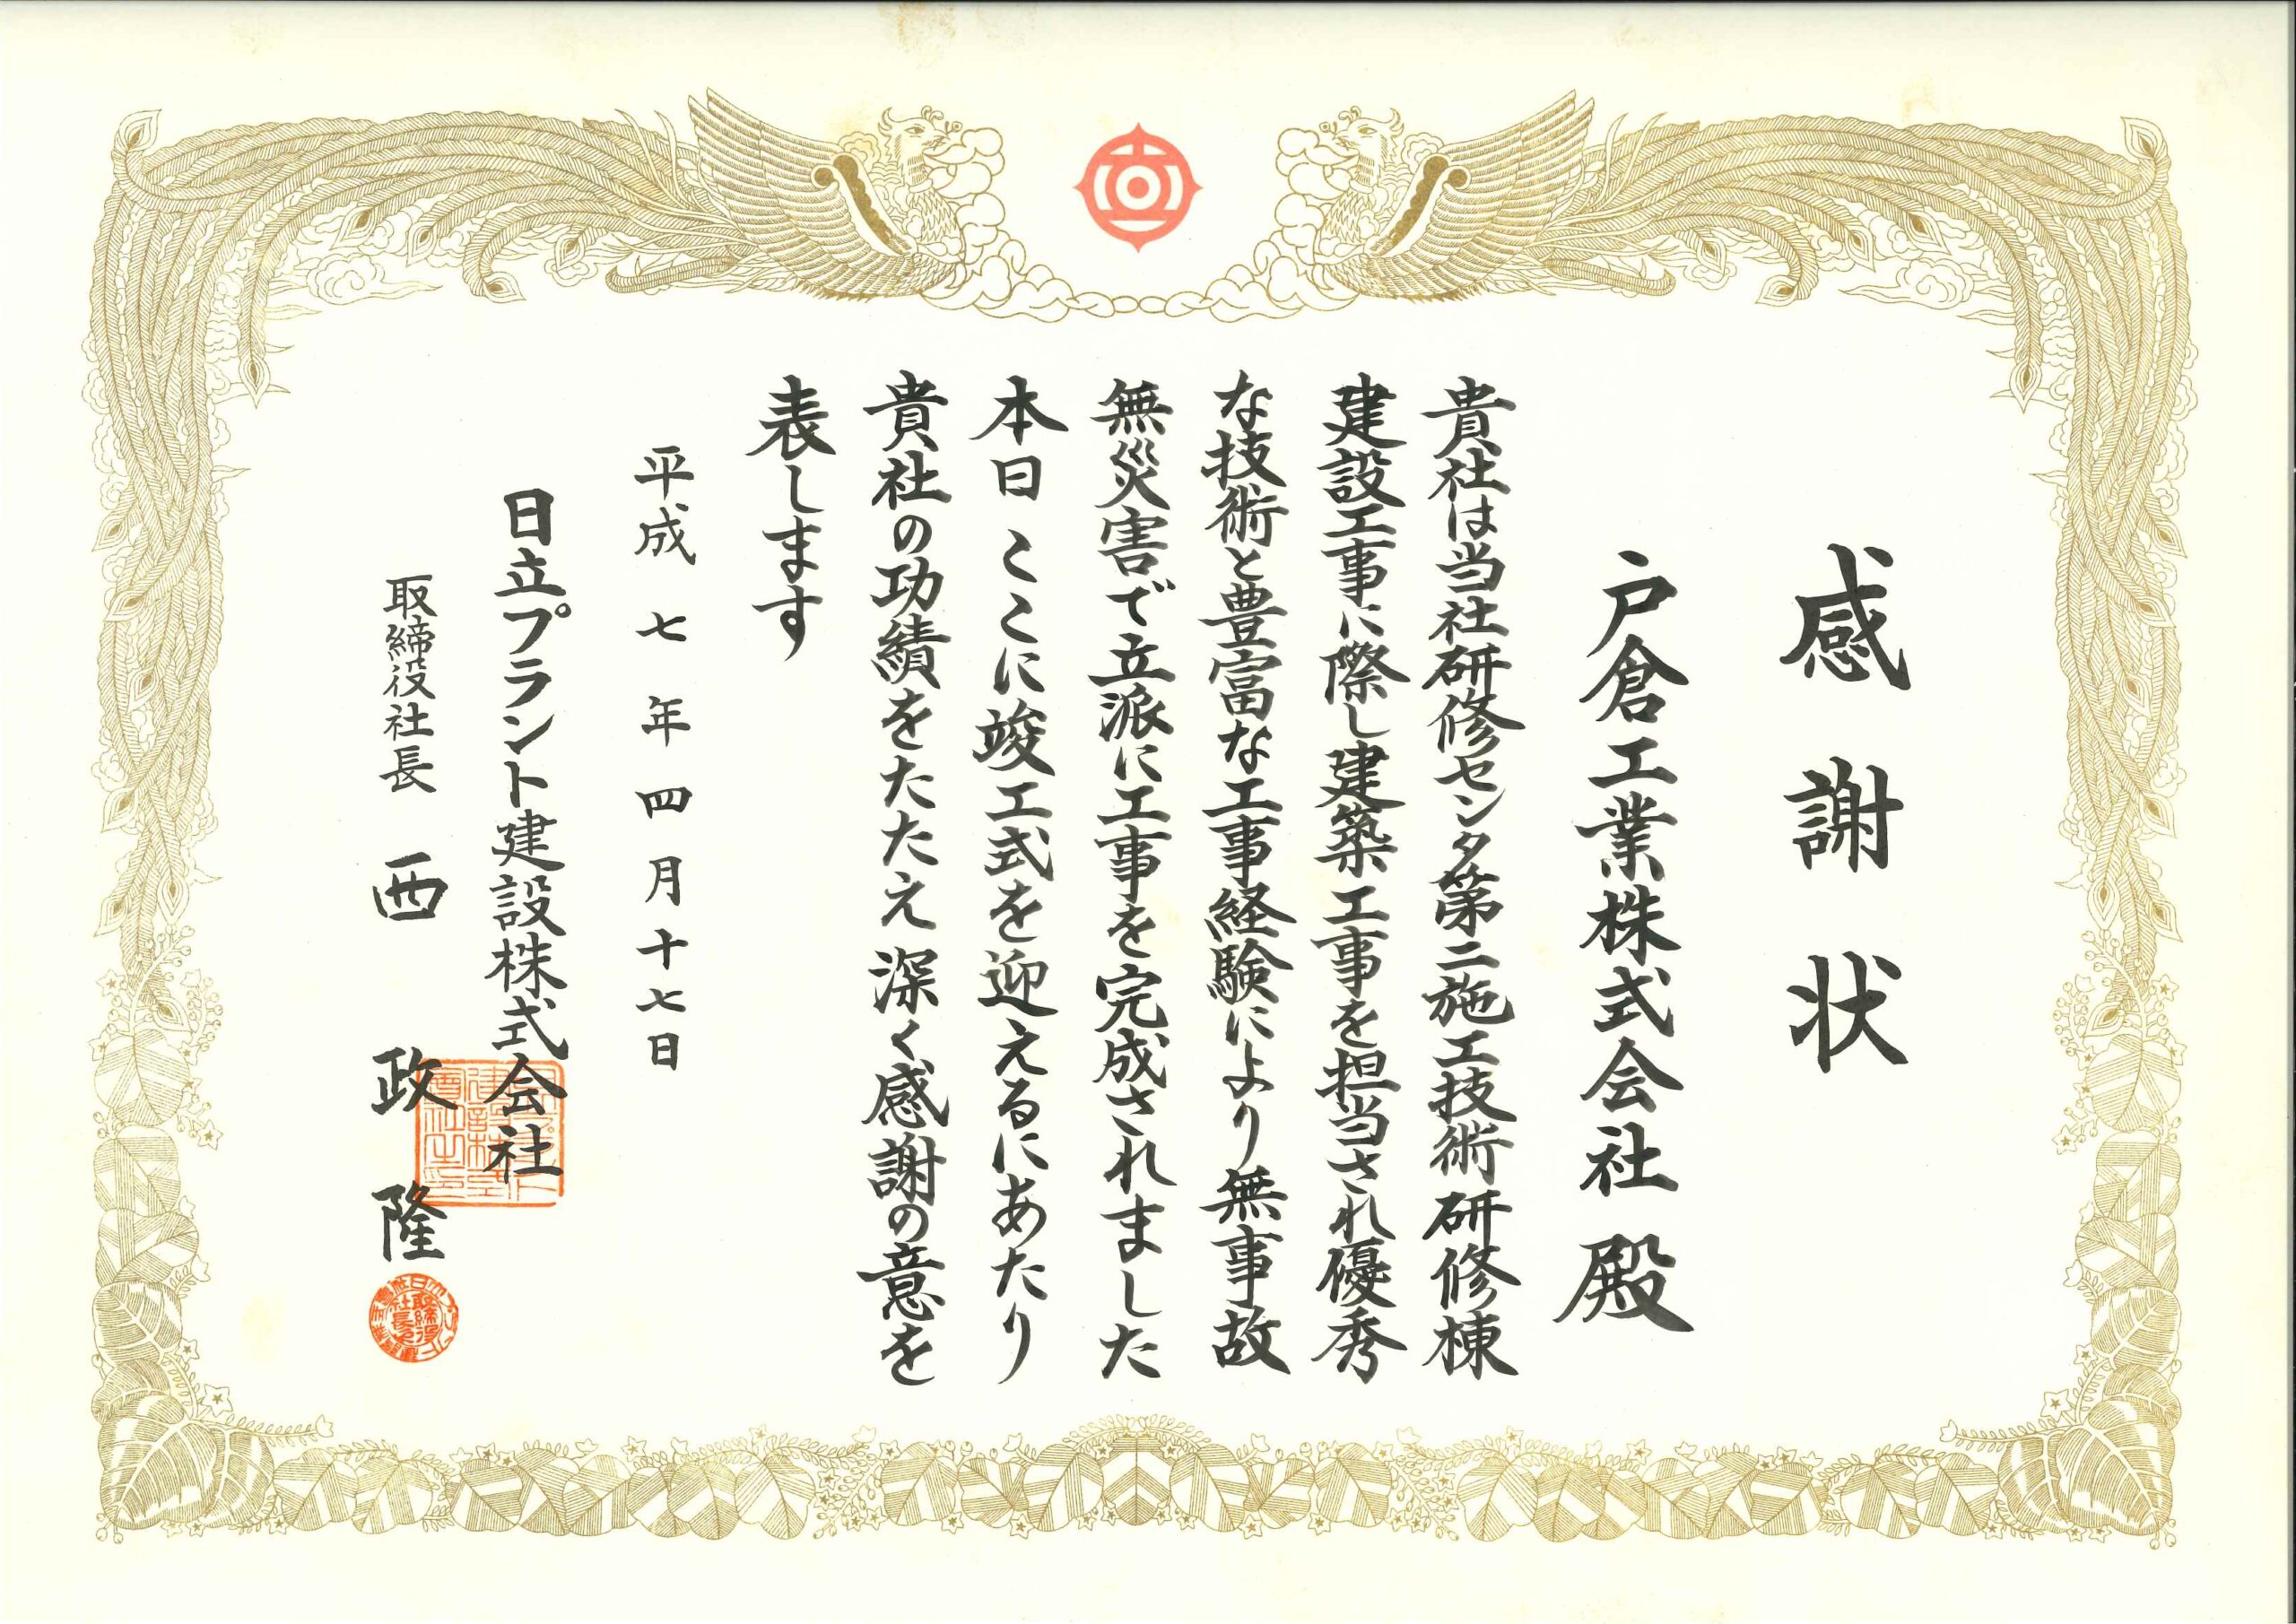 感謝状
戸倉工業株式会社殿
貴社は当社研修センタ第二施工技術研修棟
建設工事に際し建築工事を担当され優秀
な技術と豊富な工事経験により無事故
無災害で立派に工事を完成されました
本日ここに竣工式を迎えるにあたり
貴社の功績をたたえ深く感謝の意を
表します
平成七年四月十七日
日立プラント建設株式会社
取締役社長 西政隆